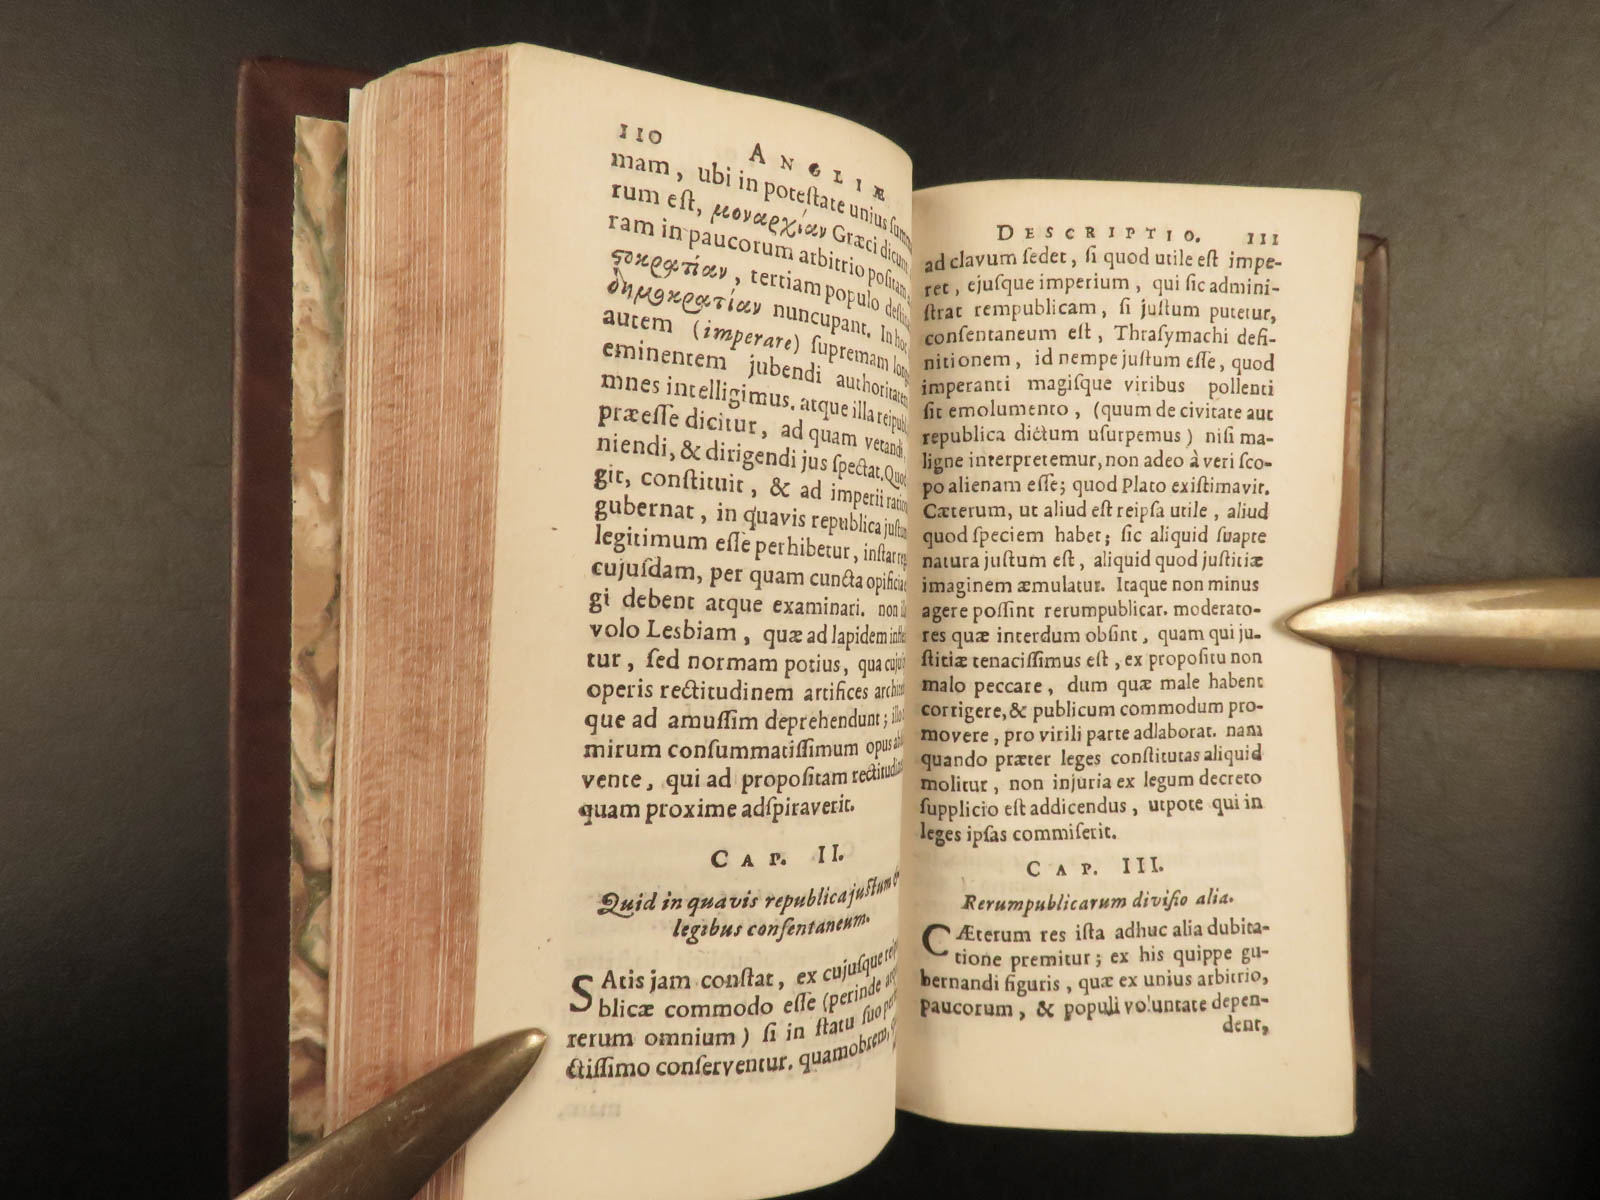 110 ANGLIÆ
mam, ubi in poteſtate unius ſumma
rum eſt, μοναρχίαν Græci dicunt
ram in paucorum arbitrio poſitam
ςοκρατίαν, tertiam populo
δημοκρατίαν nuncupant. In hoc
autem (imperare) ſupremam
eminentem jubendi authoritatem
mnes intelligimus. atque illa
præeſſe dicitur, ad quam vetandi,
niendi, & dirigendi jus ſpectat. Quod
git, conſtituit, & ad imperii
gubernat, in quavis republica
legitimum eſſe perhibetur, inſtar
cujuſdam, per quam cuncta
gi debent atque examinari. non
volo Lesbiam, quæ ad lapidem
tur, ſed normam potius, qua
operis rectitudinem artifices
que ad amuſſim deprehendunt;
mirum conſummatiſſimum opus
vente, qui ad propoſitam
quam proxime adſpiraverit.
CAP. II.
Quid in quavis republica juſtum &
legibus conſentaneum.
SAtis jam conſtat, ex cujuſque
blicæ commodo eſſe (perinde
rerum omnium) ſi in ſtatu ſuo
ctiſſimo conſerventur. quamobrem,
DESCRIPTIO. 111
ad clavum ſedet, ſi quod utile eſt impe-
ret, ejuſque imperium, qui ſic admini-
ſtrat rempublicam, ſi juſtum putetur,
conſentaneum eſt, Thraſymachi defi-
nitionem, id nempe juſtum eſſe, quod
imperanti magiſque viribus pollenti
ſit emolumento, (quum de civitate aut
republica dictum uſurpemus) niſi ma-
ligne interpretemur, non adeo à veri ſco-
po alienam eſſe; quod Plato exiſtimavit.
Cæterum, ut aliud eſt reipſa utile, aliud
quod ſpeciem habet; ſic aliquid ſuapte
natura juſtum eſt, aliquid quod juſtitiæ
imaginem æmulatur. Itaque non minus
agere poſſint rerumpublicar. moderato-
res quæ interdum obſint, quam qui ju-
ſtitiæ tenaciſſimus eſt, ex propoſitu non
malo peccare, dum quæ male habent
corrigere, & publicum commodum pro-
movere, pro virili parte adlaborat. nam
quando præter leges conſtitutas aliquid
molitur, non injuria ex legum decreto
ſupplicio eſt addicendus, utpote qui in
leges ipſas commiſerit.
CAP. III.
Rerumpublicarum diviſio alia.
CÆterum res iſta adhuc alia dubita-
tione premitur; ex his quippe gu-
bernandi figuris, quæ ex unius arbitrio,
paucorum, & populi voluntate depen-
dent,